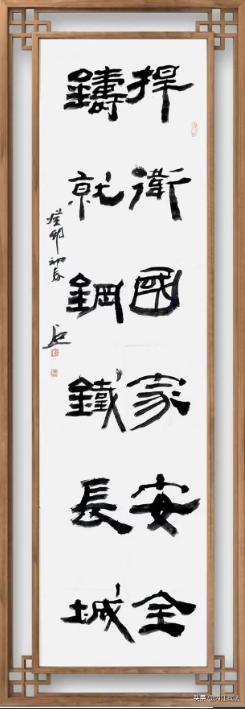 捍衛國家安全
鑄就鋼鐵長城
癸卯初春